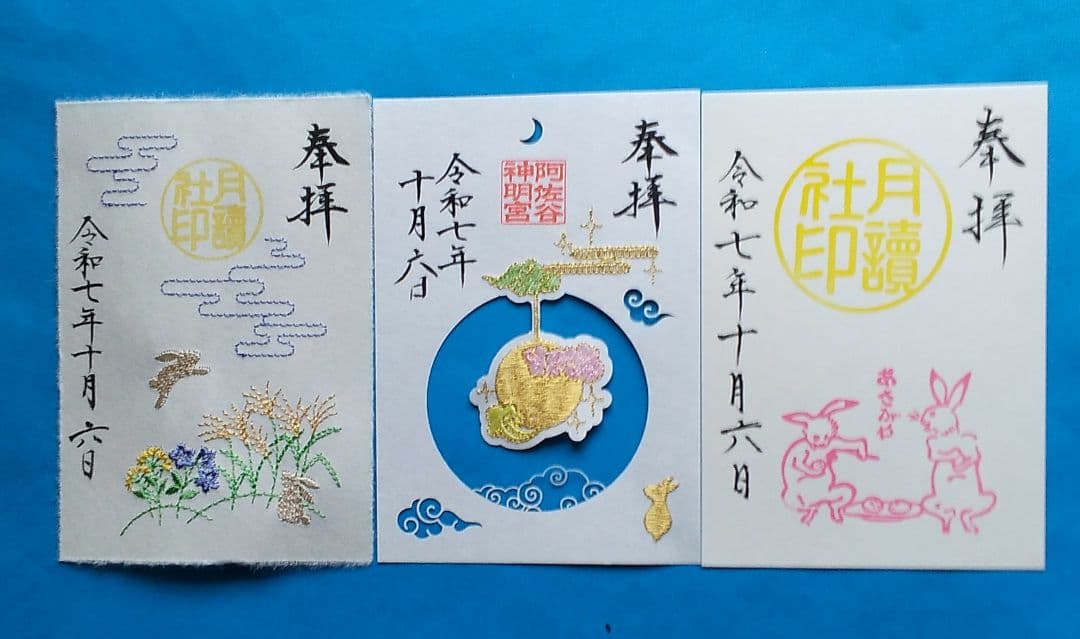 奉拝
月讀
社印
令和七年十月六日
奉拝
阿佐谷
神明宮
令和七年
十月六日
奉拝
月讀
社印
令和七年十月六日
あさがや